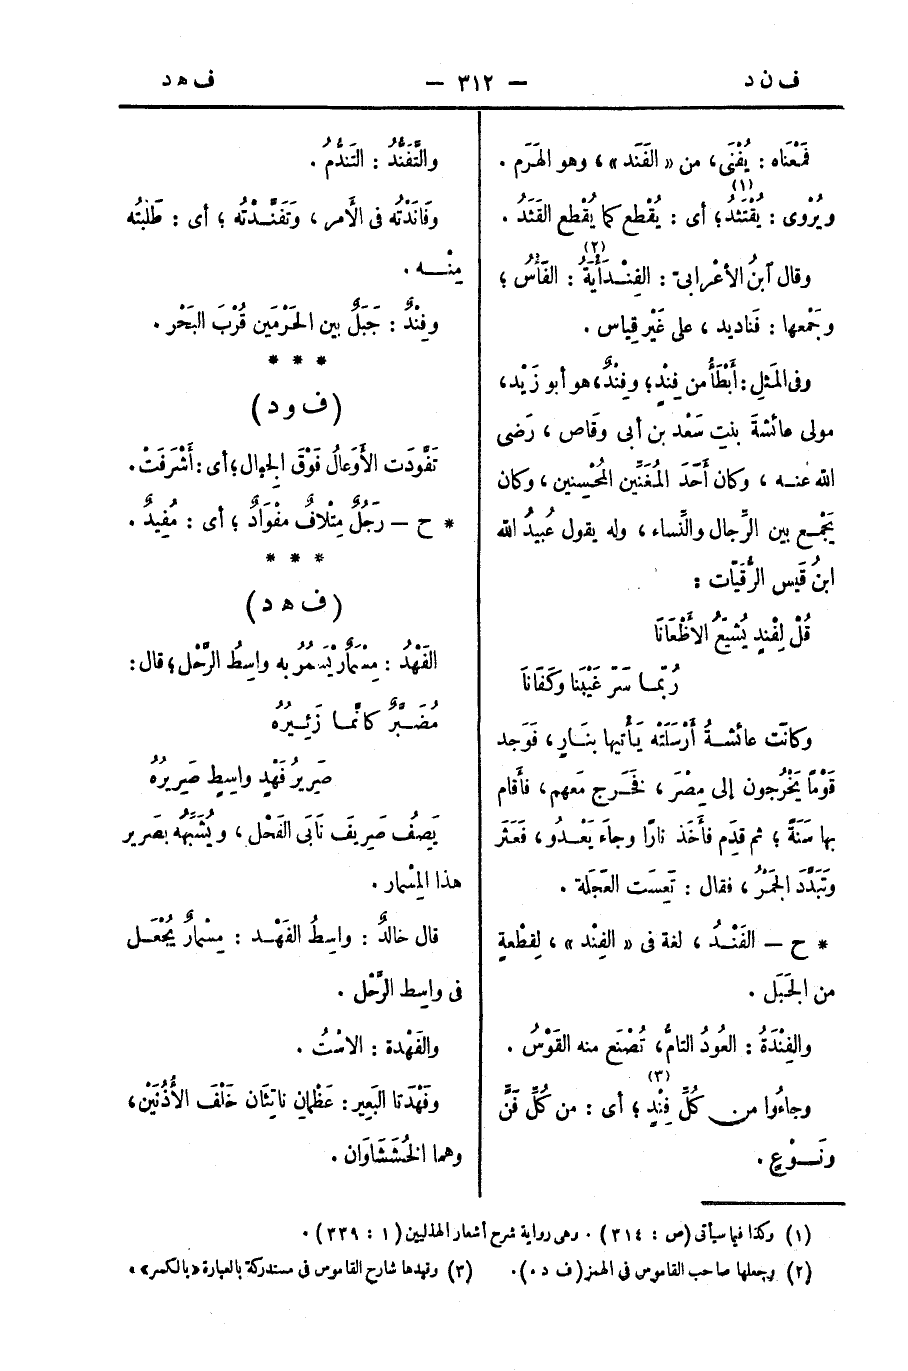 ف ن د — ٣١٢ — ف ه د
فَمَعْنَاه : يُفْنَى، من «الفَنَد»، وهو الهَرَم .
ويُرْوى : يُفْتَئَد(١)؛ أى : يُقْطع كما يُقْطع الفَنَدُ .
وقال ابنُ الأعْرابىّ : الفِنْدَأْيَةُ(٢) : الفَأْسُ ؛
وجَمْعها : فَناديد ، على غَيْر قِياس .
وفى المَثل: أَبْطَأُ من فِنْدٍ؛ وفِنْدٌ، هو أبو زَيْد،
مولى عائشةَ بنتِ سَعْد بن أبى وقّاص ، رَضى
الله عنه ، وكان أَحَدَ المُغَنِّين المُحْسِنين ، وكان
يَجْمع بين الرِّجال والنِّساء ، وله يقول عُبيدُ الله
ابنُ قَيس الرُّقَيّات :
قُلْ لِفِنْدٍ يُشَيِّعُ الأَظْعَانَا
رُبَّما سَرّ عَيْنَنا وكَفَانَا
وكانت عائشةُ أَرْسَلَتْه يَأْتيها بنَارٍ ، فَوَجد
قَوْمًا يَخْرُجون إلى مِصْرَ ، فخَرج مَعهم، فأقام
بها سَنَةً ؛ ثم قَدِم فأَخَذ نارًا وجاءَ يَعْدُو ، فَعَثَر
وتَبَدَّد الجَمْرُ ، فقال : تَعِسَت العَجَلة .
* ح — الفَنْدُ ، لغة فى «الفِنْد» ، لِقِطْعةٍ
من الجَبَل .
والفِنْدَةُ : العُودُ التامُّ، تُصْنَع منه القَوْسُ .
وجاءُوا من كُلِّ فِنْدٍ(٣) ؛ أى : من كُلِّ فَنٍّ
ونَوْعٍ .
والتَّفَنُّدُ : التَندُّمُ .
وفَانَدْتُه فى الأَمر ، وَتَفَنَّدْتُه ؛ أى : طَلَبْتُه
مِنْه .
وفِنْدٌ : جَبَلٌ بين الحَرَمَين قُرْبَ البَحْر .
* * *
(ف و د)
تَفَوَّدَت الأَوْعالُ فَوْقَ الجِبال؛ أى: أَشْرَفَتْ.
* ح — رَجُلٌ مِتْلافٌ مِفْوَادٌ ؛ أى : مُفِيدٌ .
* * *
(ف ه د)
الفَهْدُ : مِسْمَارٌ يُسْمَرُ به واسِطُ الرَّحْل؛ قال:
مُضَبَّرٌ كأنَّما زَئِيرُهُ
صَرِيرُ فَهْدٍ واسِطٍ صَرِيرُهُ
يَصِفُ صَرِيفَ نَابَى الفَحْل ، ويُشَبِّهُه بصَرير
هذا المِسْمار .
قال خالدٌ : واسِطُ الفَهْد : مِسْمارٌ يُجْعَل
فى واسِط الرَّحْل .
والفَهْدة : الاسْتُ .
وفَهْدَتا البَعِير: عَظْمانِ ناتِئان خَلْفَ الأُذُنَيْن،
وهما الخُشَشَاوَان .
(١) وكذا فيما سيأتى (ص : ٣١٤) . وهى رواية شرح أشعار الهذليين (١ : ٣٣٩) .
(٢) وجعلها صاحب القاموس فى الهمز (ف د ء). (٣) وقيدها شارح القاموس فى مستدركة بالعبارة «بالكسر» .